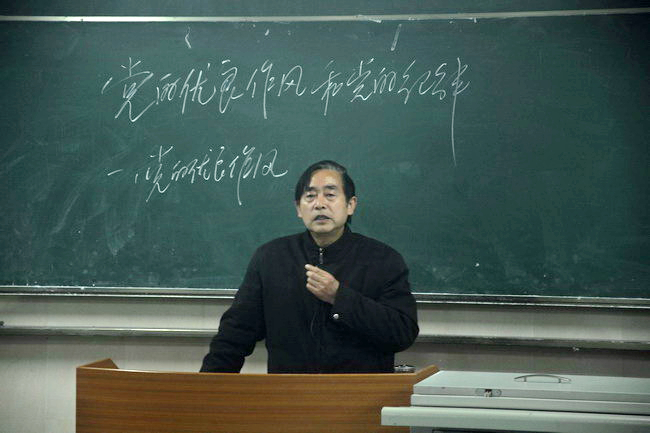 党的优良作风和党的纪律
一、党的优良作风